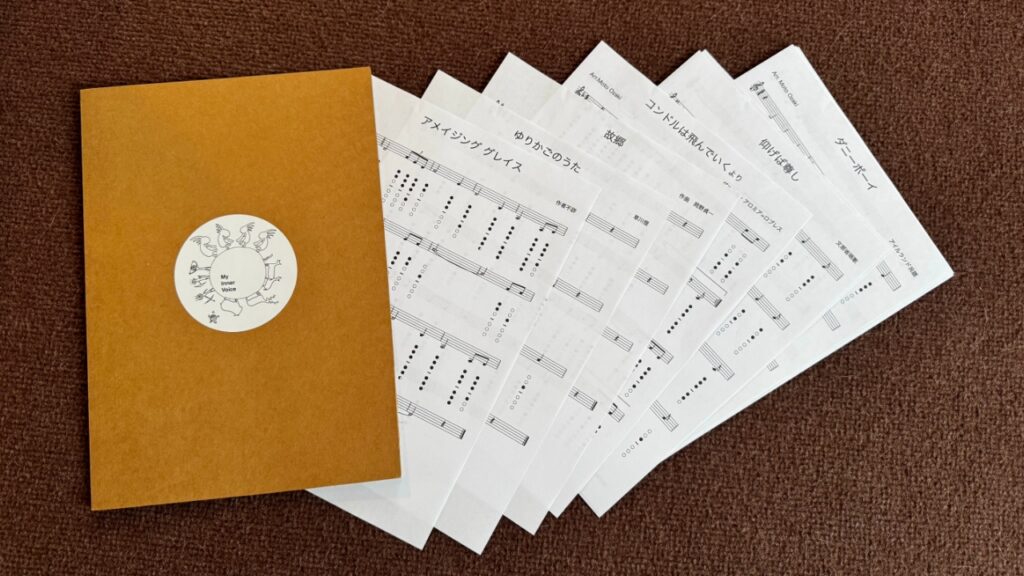 My
Inner
Voice
アメイジング グレイス
作者不詳
ゆりかごのうた
草川信
故郷
作曲 岡野貞一
Arr.Moto Osaki
コンドルは飛んでいくより
アロミア=ロブレス
仰げば尊し
文部省唱歌
Arr. Moto Osaki
ダニーボーイ
アイルランド民謡